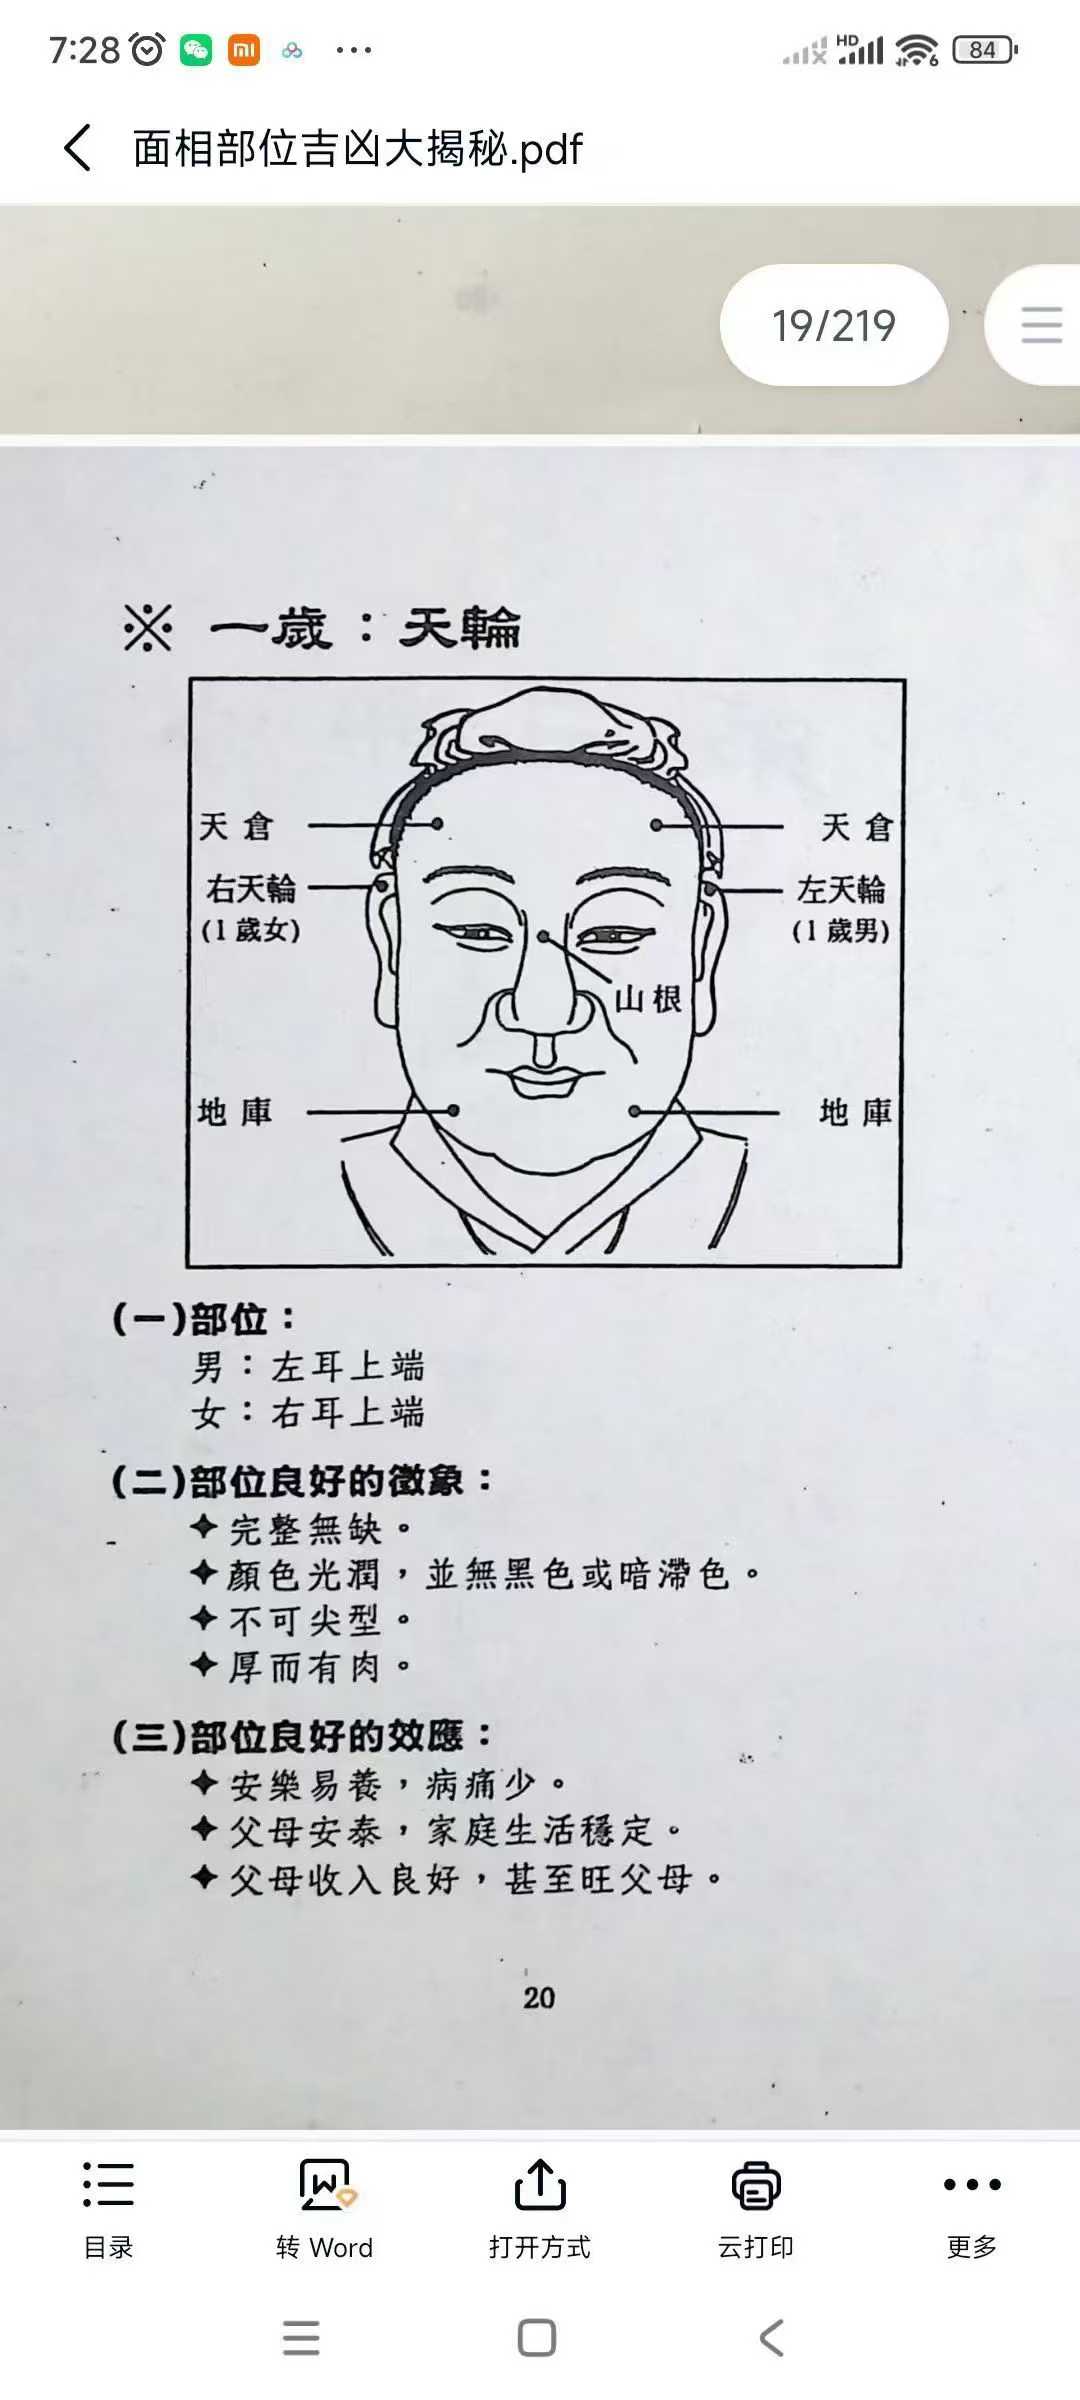 7:28
HD
6
84
面相部位吉凶大揭秘.pdf
19/219
※ 一歲：天輪
天倉
天倉
右天輪
(1歲女)
左天輪
(1歲男)
山根
地庫
地庫
(一)部位：
男：左耳上端
女：右耳上端
(二)部位良好的徵象：
✦完整無缺。
✦顏色光潤，並無黑色或暗滯色。
✦不可尖型。
✦厚而有肉。
(三)部位良好的效應：
✦安樂易養，病痛少。
✦父母安泰，家庭生活穩定。
✦父母收入良好，甚至旺父母。
20
目录
转 Word
打开方式
云打印
更多